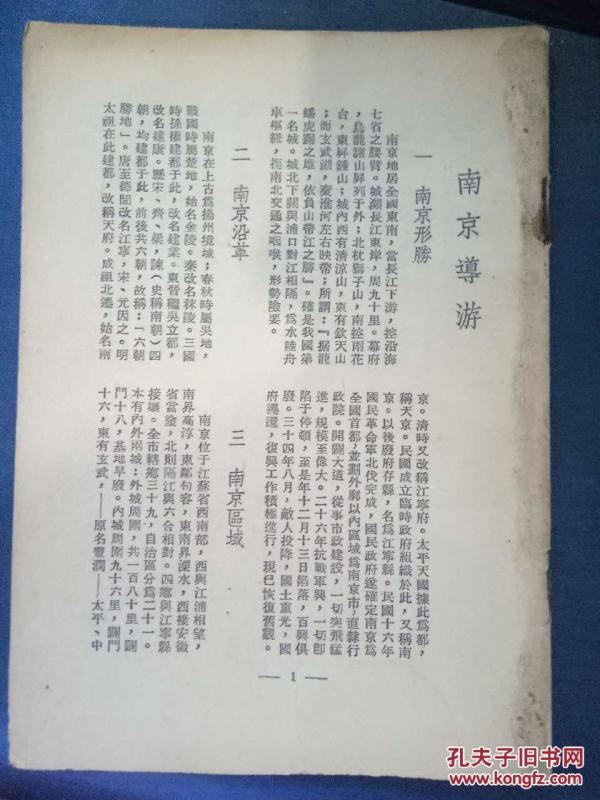 南京導游
一　南京形勝
南京地居全國東南，當長江下游，控沿海
七省之腰膂。城瀕長江東岸，周九十里。幕府
，烏龍諸山屏列于外；北枕獅子山，南控雨花
台，東屏鍾山；城內西有清涼山，東有欽天山
；而玄武湖，秦淮河左右映帶；所謂：『据龍
蟠虎踞之雄，依負山帶江之勝』。確是我國第
一名城。城北下關與浦口對江相隔，爲水陸舟
車樞紐，扼南北交通之咽喉，形勢險要。
二　南京沿革
南京在上古爲揚州境域；春秋時屬吳地，
戰國時屬楚地，始名金陵。秦改名秣陵。三國
時孫權建都于此，改名建業。東晉繼吳立都，
改名建康。歷宋、齊、梁、陳（史稱南朝）四
朝，均建都于此，前後共六朝，故稱：「六朝
勝地」。唐至德間改名江寧，宋、元因之。明
太祖在此建都，改稱天府。成祖北遷，始名南
京。清時又改稱江寧府。太平天國據此爲都，
稱天京。民國成立臨時政府組織於此，又稱南
京。以後廢府存縣，名爲江寧縣。民國十六年
國民革命軍北伐完成，國民政府遂確定南京爲
全國首都，並劃外廓以內區域爲南京市，直隷行
政院。開闢大道，從事市政建設，一切突飛猛
進，規模至偉大。二十六年抗戰軍興，一切卽
陷于停頓，至是年十二月十三日陷落，百興俱
廢。三十四年八月，敵人投降，國土重光，國
府遷還，復興工作積極進行，現已恢復舊觀。
三　南京區域
南京位于江蘇省西南部，西與江浦相望，
南界高淳，東鄰句容，東南界溧水，西接安徽
省當塗，北則隔江與六合相對。四鄉與江寧縣
接壤。全市轄鄉三十九，自治區分爲二十一。
本有內外兩城：外城周圍，共一百八十里，闢
門十八，基地早廢。內城周圍九十六里，闢門
十六，東有玄武，——原名豐潤——太平、中
— 1 —
孔夫子旧书网
www.kongfz.com